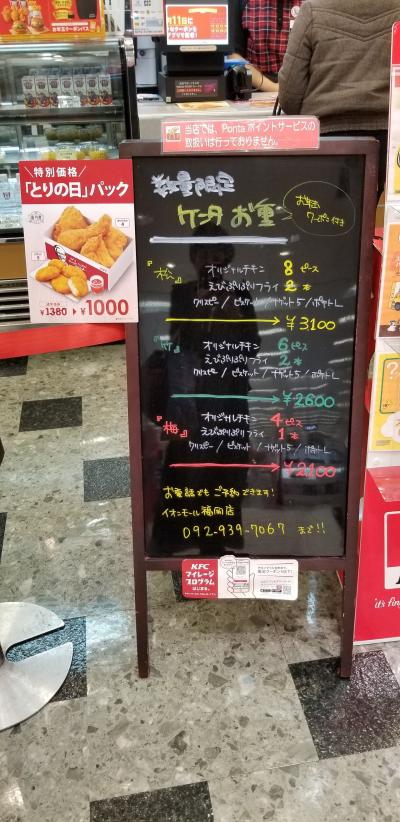 月11日に
当店では、Pontaポイントサービスの
取扱いは行っておりません。
特別価格
「とりの日」パック
¥1380 ▶ ¥1000
数量限定
ケンタ お重
お年玉
クーポン付き
『松』
オリジナルチキン 8ピース
えびぷりぷりフライ 2本
クリスピー / ビスケット / ナゲット5 / ポテトL
¥3100
『竹』
オリジナルチキン 6ピース
えびぷりぷりフライ 2本
クリスピー / ビスケット / ナゲット5 / ポテトL
¥2600
『梅』
オリジナルチキン 4ピース
えびぷりぷりフライ 1本
クリスピー / ビスケット / ナゲット5 / ポテトL
¥2100
お電話でも ご予約できます!
イオンモール福岡店
092-939-7067 まで!!
KFC
マイレージ
プログラム
はじまる。
it's fin